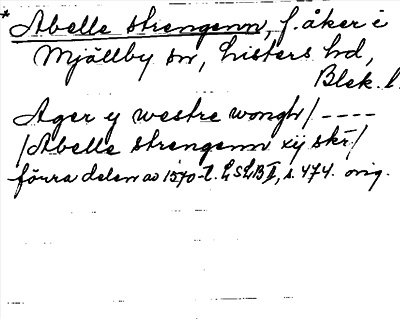 * Abelle strengenn, f. åker i
Mjällby sn, Listers hd,
Blek. l.
Ager y westre wongh / ----
/ Abelle strengenn xij skr. /
förra delen av 1570-t. LSLB II, s. 474. orig.